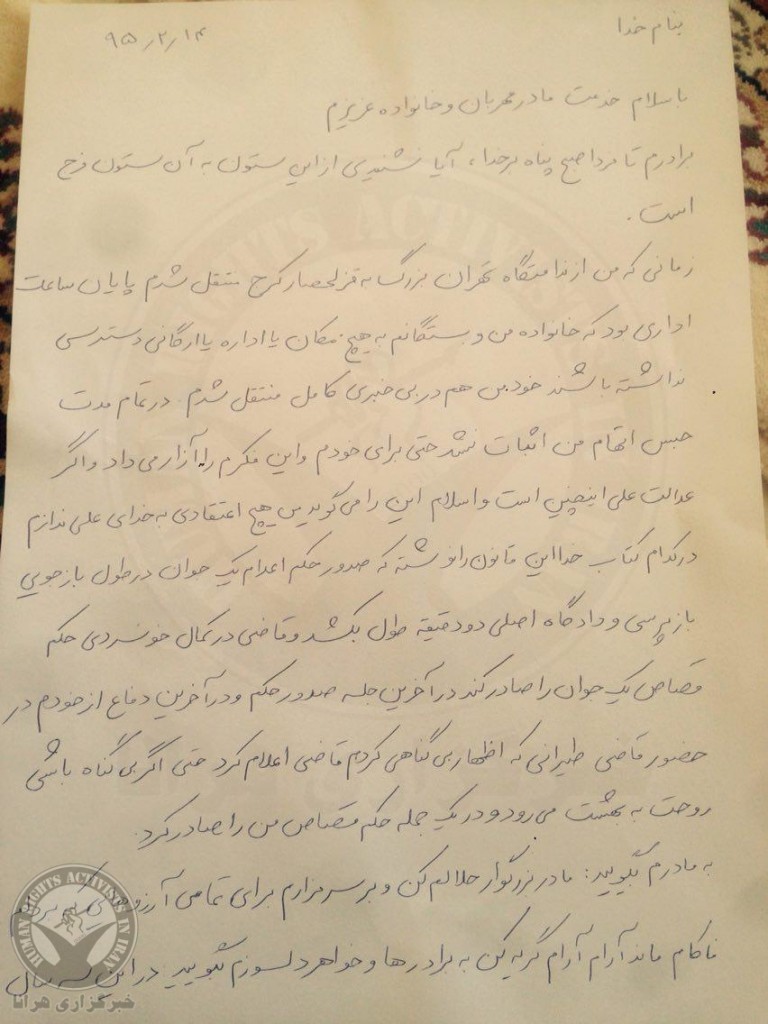 بنام خدا
۹۵٫۲٫۱۴
با سلام خدمت مادر مهربان و خانواده عزیزم
برادرم تا فردا صبح پناه بر خدا، آیا نشنیدی از این ستون به آن ستون فرج
است.
زمانی که من از ندامتگاه تهران بزرگ به قزلحصار کرج منتقل شدم پایان ساعت
اداری بود که خانواده من و بستگانم به هیچ مکان یا اداره یا ارگانی دسترسی
نداشته باشند خود من هم در بی خبری کامل منتقل شدم. در تمام مدت
حبس اتهام من اثبات نشد حتی برای خودم و این فکرم را آزار می داد و اگر
عدالت علی اینچنین است و اسلام این را می گوید من هیچ اعتقادی به خدای علی ندارم
در کدام کتاب خدا این قانون را نوشته که صدور حکم اعدام یک جوان در طول بازجویی
بازپرسی و دادگاه اصلی دو دقیقه طول بکشد و قاضی در کمال خونسردی حکم
قصاص یک جوان را صادر کند در آخرین جلسه صدور حکم و در آخرین دفاع از خودم در
حضور قاضی طیرانی که اظهار بی گناهی کردم قاضی اعلام کرد حتی اگر بی گناه باشی
روحت به بهشت می رود و در یک جمله حکم قصاص من را صادر کرد.
به مادرم بگویید: مادر بزرگوار حلالم کن و بر سر مزارم برای تمامی آرزوهایی که
ناکام ماند آرام آرام گریه کن به برادرها و خواهر دلسوزم بگویید در این سه سال
HUMAN RIGHTS ACTIVISTS IN IRAN
خبرگزاری هرانا